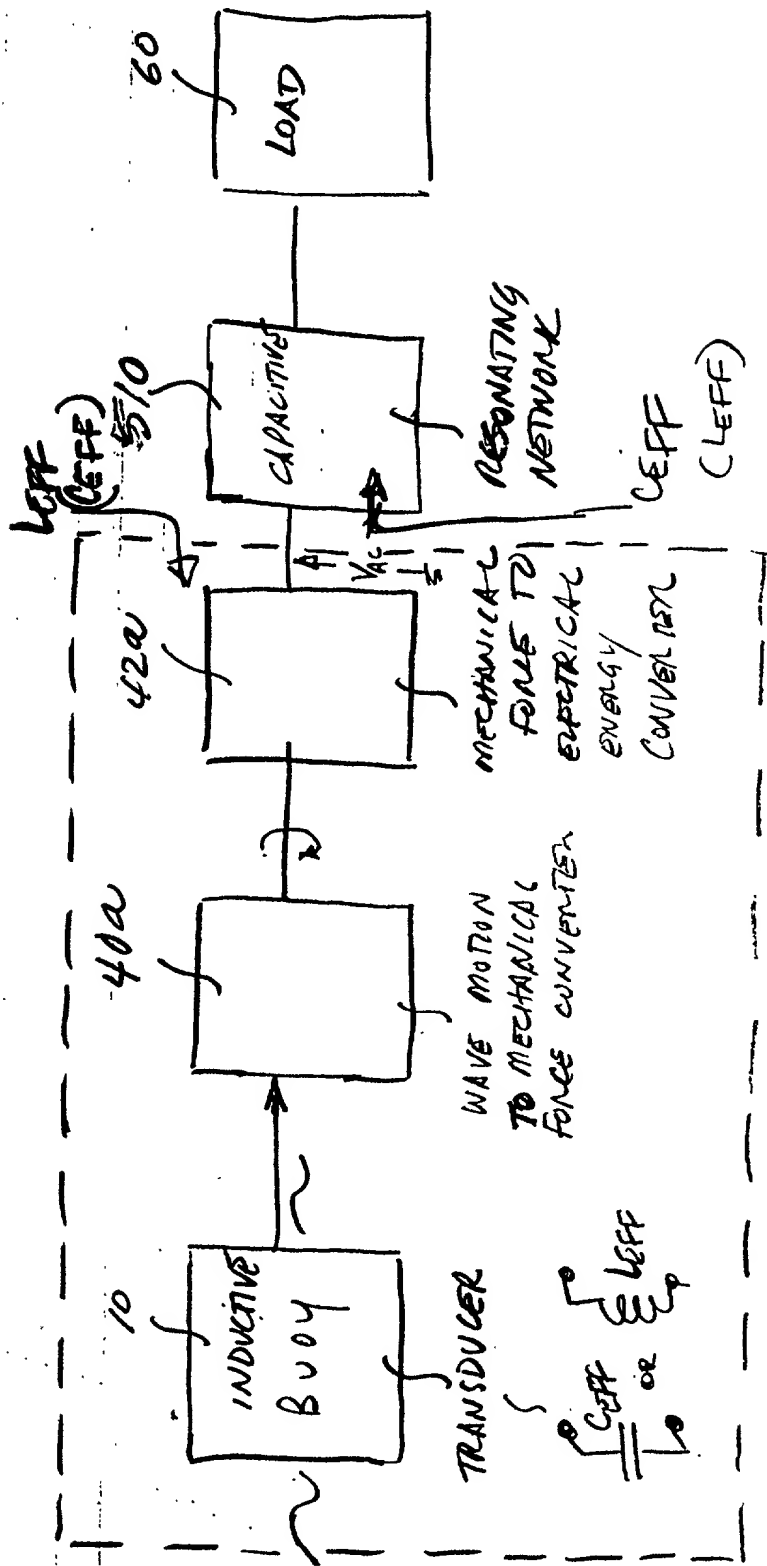 10
INDUCTIVE
BUOY
TRANSDUCER
CEFF
OR
LEFF
40a
WAVE MOTION
TO MECHANICAL
FORCE CONVERTER
42a
MECHANICAL
FORCE TO
ELECTRICAL
ENERGY
CONVERTER
VAC
LEFF
(CEFF)
10
CAPACITIVE
RESONATING
NETWORK
CEFF
(LEFF)
60
LOAD